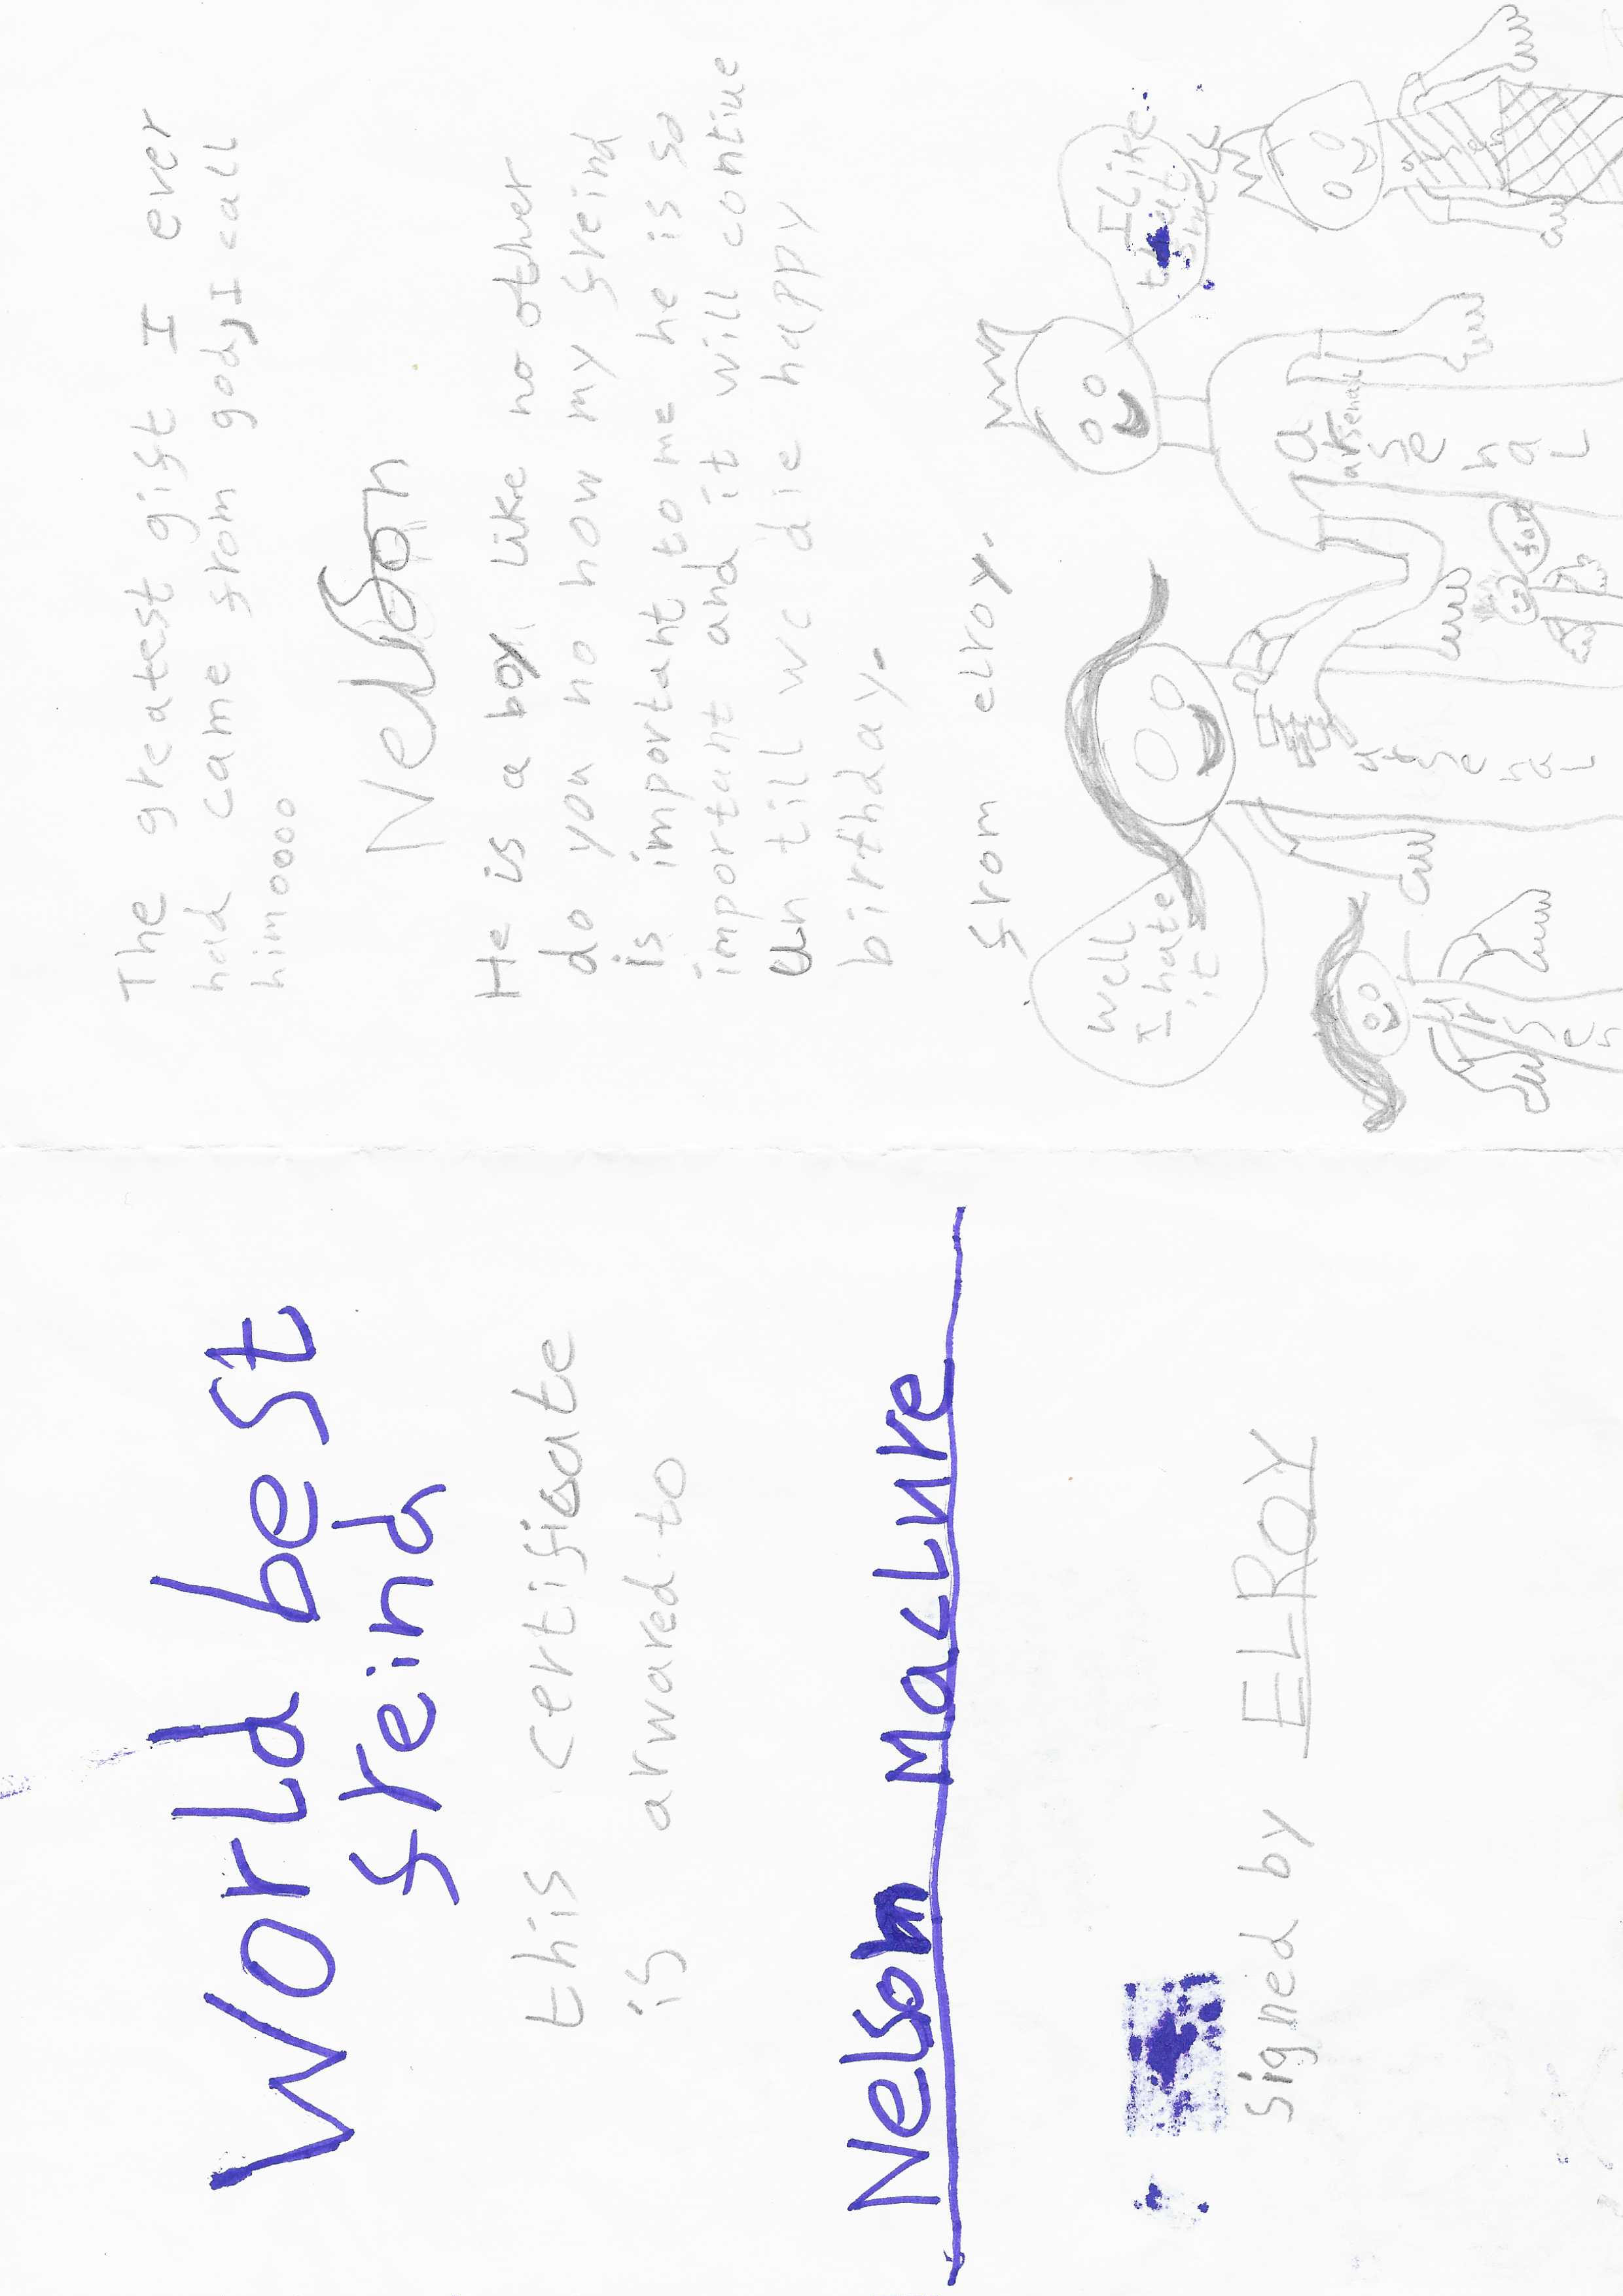 World best
freind
this certificate
is arwared to
Nelson Maclure
signed by ELROY
The greatest gift I ever
had came from god, I call
himoooo
Nelson
He is a boy like no other
do you no how my freind
is important to me he is so
important and it will contiue
un till we die happy
birthday.
from elroy.
Well
I hate
it
I like
that
arsenal